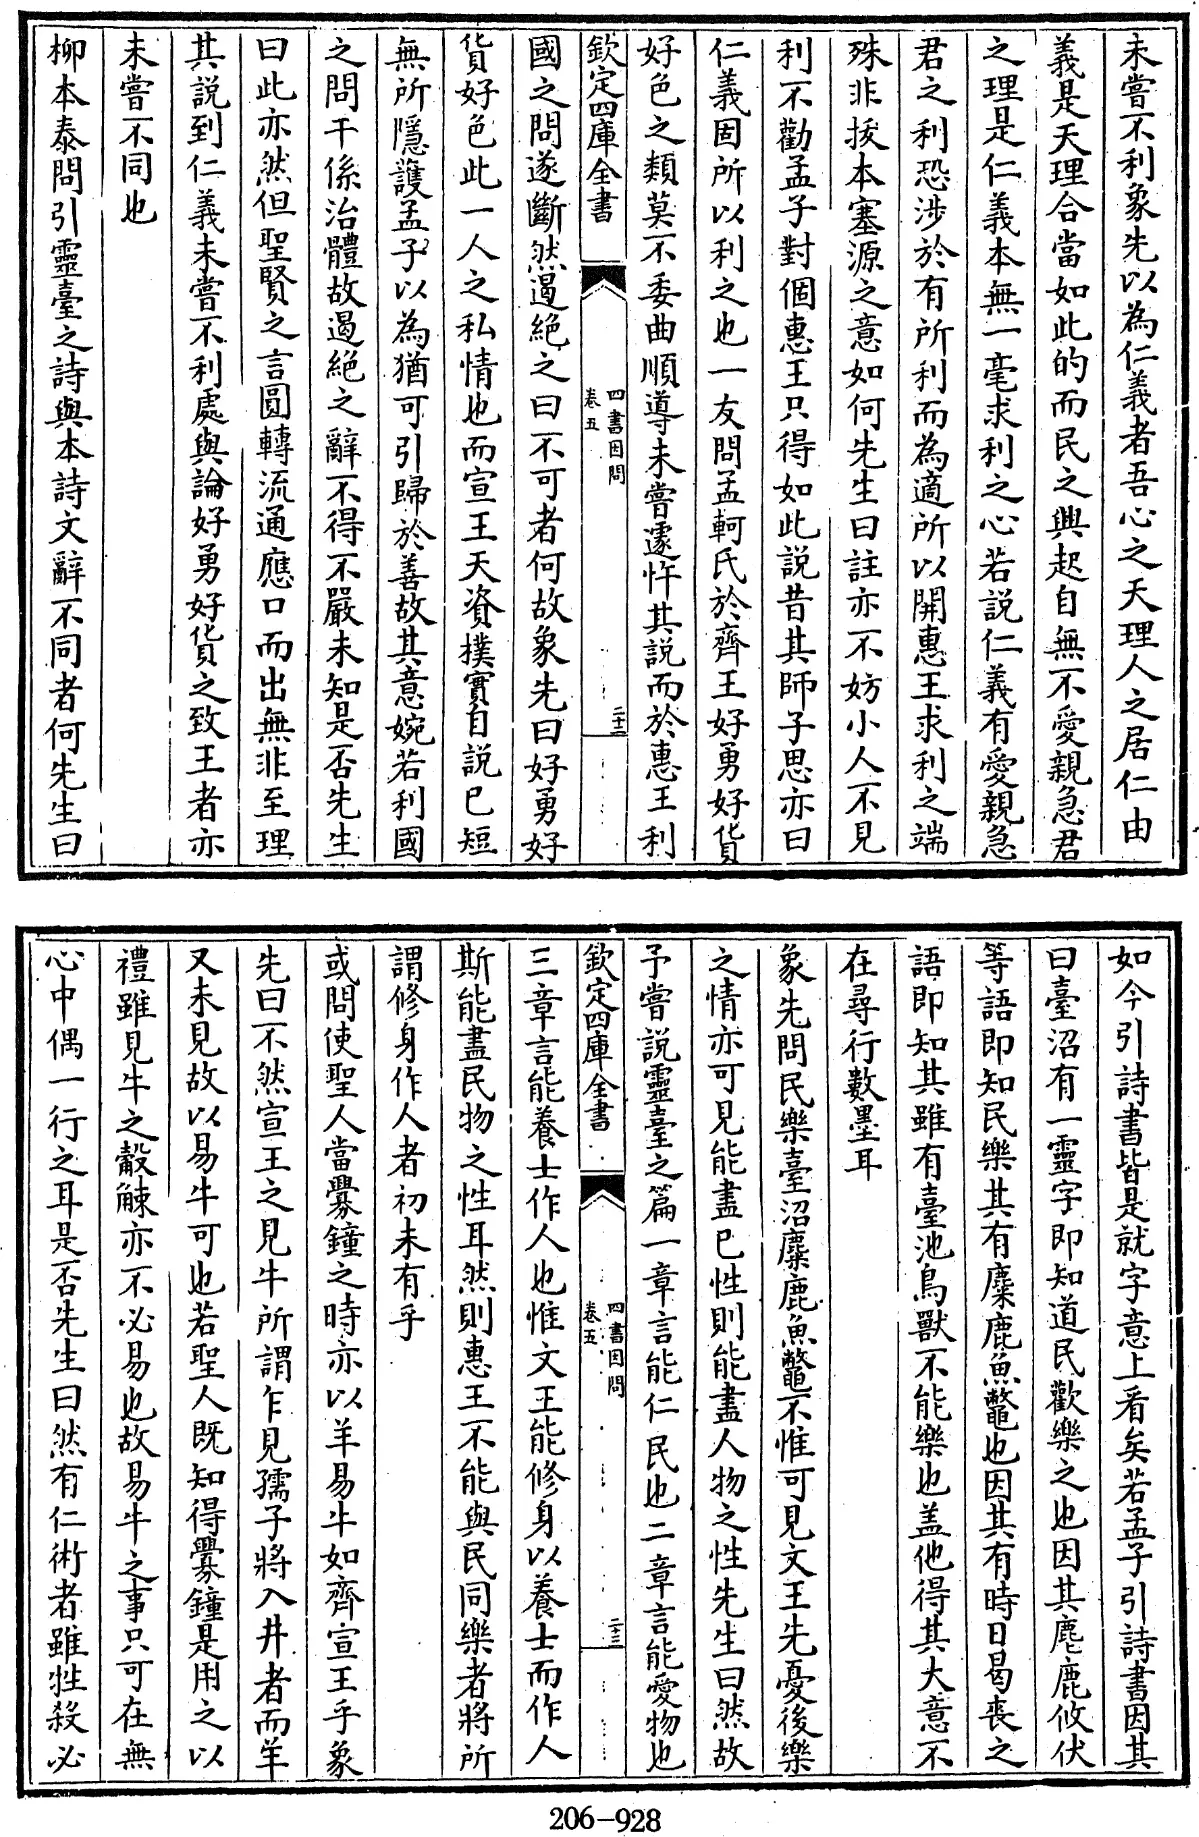 未嘗不利象先以為仁義者吾心之天理人之居仁由
義是天理合當如此的而民之興起自無不愛親急君
之理是仁義本無一毫求利之心若說仁義有愛親急
君之利恐涉於有所利而為適所以開惠王求利之端
殊非拔本塞源之意如何先生曰註亦不妨小人不見
利不勸孟子對個惠王只得如此說昔其師子思亦曰
仁義固所以利之也一友問孟軻氏於齊王好勇好貨
好色之類莫不委曲順導未嘗遽忤其說而於惠王利
欽定四庫全書
四書因問
卷五
二十二
國之問遂斷然遏絕之曰不可者何故象先曰好勇好
貨好色此一人之私情也而宣王天資樸實自說已短
無所隱護孟子以為猶可引歸於善故其意婉若利國
之問干係治體故遏絕之辭不得不嚴未知是否先生
曰此亦然但聖賢之言圓轉流通應口而出無非至理
其說到仁義未嘗不利處與論好勇好貨之致王者亦
未嘗不同也
柳本泰問引靈臺之詩與本詩文辭不同者何先生曰
如今引詩書皆是就字意上看矣若孟子引詩書因其
曰臺沼有一靈字即知道民歡樂之也因其麀鹿攸伏
等語即知民樂其有麋鹿魚鼈也因其有時日曷喪之
語即知其雖有臺池鳥獸不能樂也盖他得其大意不
在尋行數墨耳
象先問民樂臺沼麋鹿魚鼈不惟可見文王先憂後樂
之情亦可見能盡已性則能盡人物之性先生曰然故
予嘗說靈臺之篇一章言能仁民也二章言能愛物也
欽定四庫全書
四書因問
卷五
二十三
三章言能養士作人也惟文王能修身以養士而作人
斯能盡民物之性耳然則惠王不能與民同樂者將所
謂修身作人者初未有乎
或問使聖人當釁鐘之時亦以羊易牛如齊宣王乎象
先曰不然宣王之見牛所謂乍見孺子將入井者而羊
又未見故以易牛可也若聖人既知得釁鐘是用之以
禮雖見牛之觳觫亦不必易也故易牛之事只可在無
心中偶一行之耳是否先生曰然有仁術者雖牲殺必
206-928